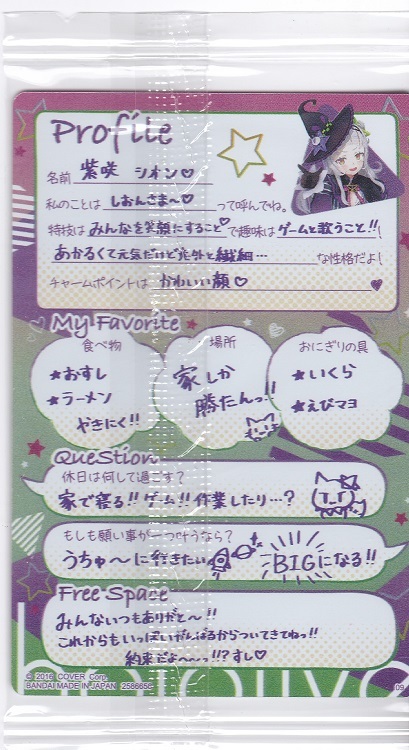 Profile
名前 紫咲 シオン♡
私のことは しおんさま〜♡ って呼んでね。
特技は みんなを笑顔にすること♡ で趣味は ゲームと歌うこと!! !
あかるくて元気だけど意外と繊細… な性格だよ!
チャームポイントは かわいい顔♡
My Favorite
食べ物
★おすし
★ラーメン
やきにく!!
場所
家しか
勝たんっ!!
おにぎりの具
★いくら
★えびマヨ
Question
休日は何して過ごす?
家で寝る!!ゲーム!!作業したり…?
もしも願い事が一つ叶うなら?
うちゅ〜に行きたい
BIGになる!!
Free Space
みんないつもありがと〜!!
これからもいっぱいがんばるからついてきてねっ!!
約束だよ〜〜っ!?すし♡
© 2016 COVER Corp.
BANDAI MADE IN JAPAN
09
hololive